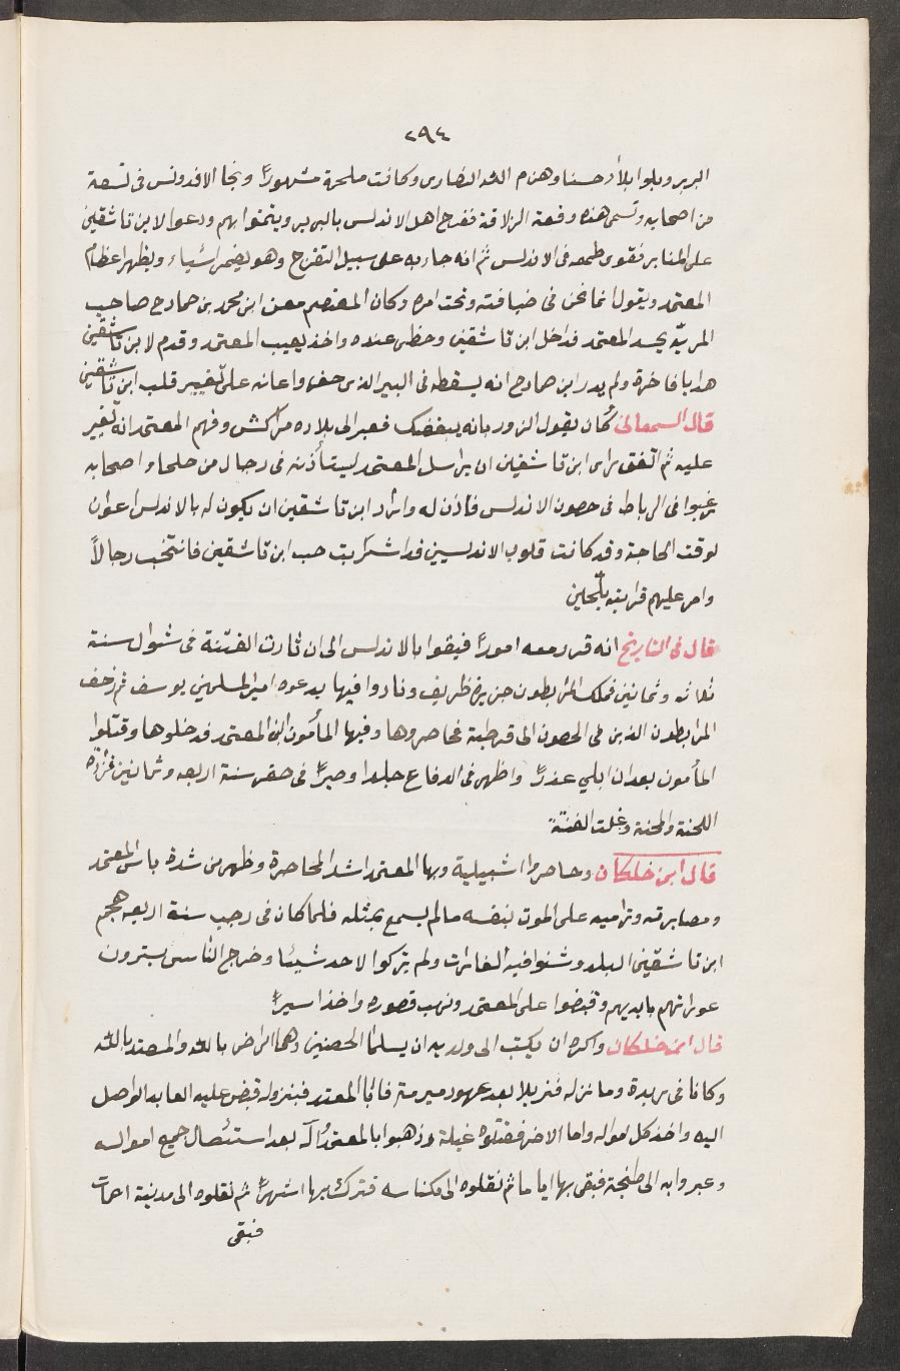 ٢٩٤
البربر وبلوا بلأد حسنا وهزم الله النصارى وكانت ملحمة مشهورةً ونجا الافدونس فى تسعة
من اصحابه وتسمى هذه وقعة الزلاقة ففرح اهل الاندلس بالبربر ويتمنوا بهم ودعوا لابن تاشقين
على المنابر فقوى طمعه فى الاندلس ثم انه جاء به على سبيل التفرج وهو يضمر اشياء ويظهر اعظام
المعتمد ويقول انما نحن فى ضيافته وتحت امره وكان المعتصم معن ابن محمد بن صمادح صاحب
المريّة يحسد المعتمد فداخل ابن تاشقين وحظى عنده واخذ يعيب المعتمد وقدم لابن تاشقين
هدايا فاخرة ولم يدر ابن صمادح انه يسقطه فى البير الذى حفر واعانه على تغيير قلب ابن تاشقين
قال السمعانى كان يقول الزور بانه يبغضك فعبر الى بلاده مراكش وفهم المعتمد انه تغير
عليه ثم اتفق راى ابن تاشقين ان يراسل المعتمد ليستأذنه فى رجال من صلحا واصحابه
رغبوا فى الرباط فى حصون الاندلس فاذن له واراد ابن تاشقين ان يكون له بالاندلس اعوان
لوقت الحاجة وقد كانت قلوب الاندلسيين قد اشرابت حب ابن تاشقين فانتخب رجالاً
وامر عليهم قرابته بلجين
قال فى التاريخ انه قرر معه اموراً فبقوا بالاندلس الى ان ثارت الفتنة فى شوال سنة
ثلاثه وثمانين فملك المرابطون جزيرة ظريف ونادوا فيها بدعوه امير المسلمين يوسف ثم زحف
المرابطون الذين فى الحصون الى قرطبة فحاصروها وفيها المأمون ابن المعتمد فدخلوها وقتلوا
المأمون بعد ان ابلي عذراً واظهر فى الدفاع جلدا وصبراً فى صفر سنة اربعه وثمانين فزاده
اللحنة والمحنة وغلت الفتنة
قال ابن خلكان وحاصروا اشبيلية وبها المعتمد اشد المحاصرة وظهر من شدة باس المعتمد
ومصابرته وتراميه على الموت بنفسه ما لم يسمع بمثله فلما كان فى رجب سنة اربعه هجم
ابن تاشقين البلد وشنوا فيه الغارات ولم يتركوا لاحد شيئا وخرج الناس يسترون
عوراتهم بايديهم وقبضوا على المعتمد ونهب قصوره واخذ اسيراً
قال ابن خلكان واكره ان يكتب الى ولديه ان يسلما الحصنين وهما الراضى بالله والمعتد بالله
وكانا فى رندة وما نزله فنزيلا بعد عهود مبرمة فاما المعتد فبنزوله قبض عليه العابد الواصل
اليه واخذ كل امواله واما الاخر فقتلوه غيلة وذهبوا بالمعتمد وآله بعد استئصال جميع امواله
وعبروا به الى طنجة فبقى بها اياما ثم نقلوه الى مكناسه فترك بها اشهراً ثم نقلوه الى مدينة اغمات
فبقى